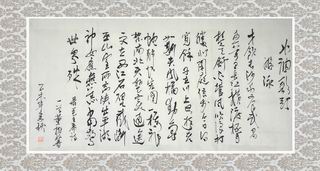 水调歌头
游泳
才饮长沙水又食武昌
鱼万里长江横渡极目
楚天舒不管风吹浪打
胜似闲庭信步今日得
宽馀子在川上曰逝者
如斯夫风樯动龟蛇
静起宏图一桥飞
架南北天堑变通途
更立西江石壁截断
巫山云雨高峡出平湖
神女应无恙当惊
世界殊